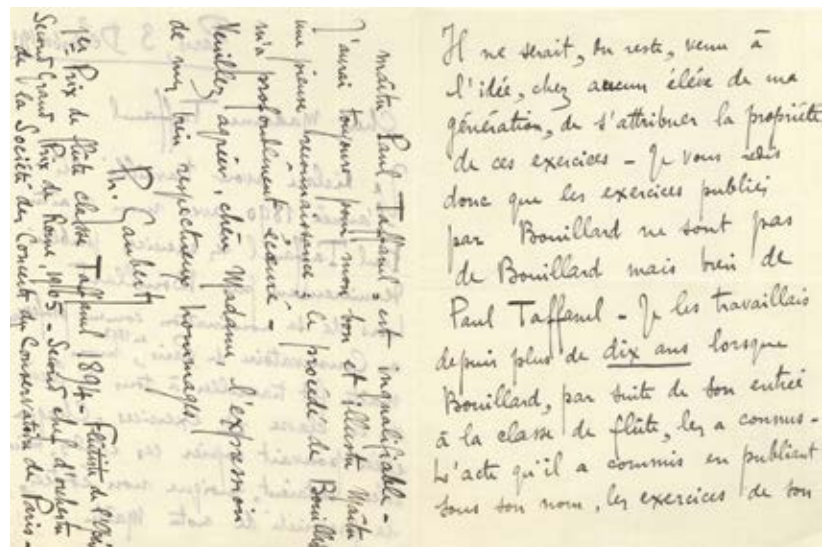 Il ne serait, du reste, venu à
l'idée, chez aucun élève de ma
génération, de s'attribuer la propriété
de ces exercices – Je vous redis
donc que les exercices publiés
par Bouillard ne sont pas
de Bouillard mais bien de
Paul Taffanel – Je les travaillais
depuis plus de dix ans lorsque
Bouillard, par suite de son entrée
à la classe de flûte, les a connus –
L'acte qu'il a commis en publiant
sous son nom, les exercices de son
maître Paul Taffanel, est inqualifiable –
J'aurai toujours pour mon bon et illustre Maître
une pieuse reconnaissance ; le procédé de Bouillard
m'a profondément écœuré –
Veuillez agréer, chère Madame, l'expression
de mes bien respectueux hommages
Ph. Gaubert
1er Prix de flûte classe Taffanel 1894 – Flûtiste de l'Opé
Second Grand Prix de Rome 1905 – Second chef d'orchestre
de la Société des Concerts du Conservatoire de Paris –